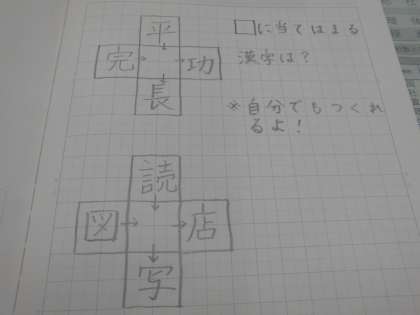 平
完 功
長
□に当てはまる
漢字は？
*自分でもつくれ
るよ！
読
図 店
写